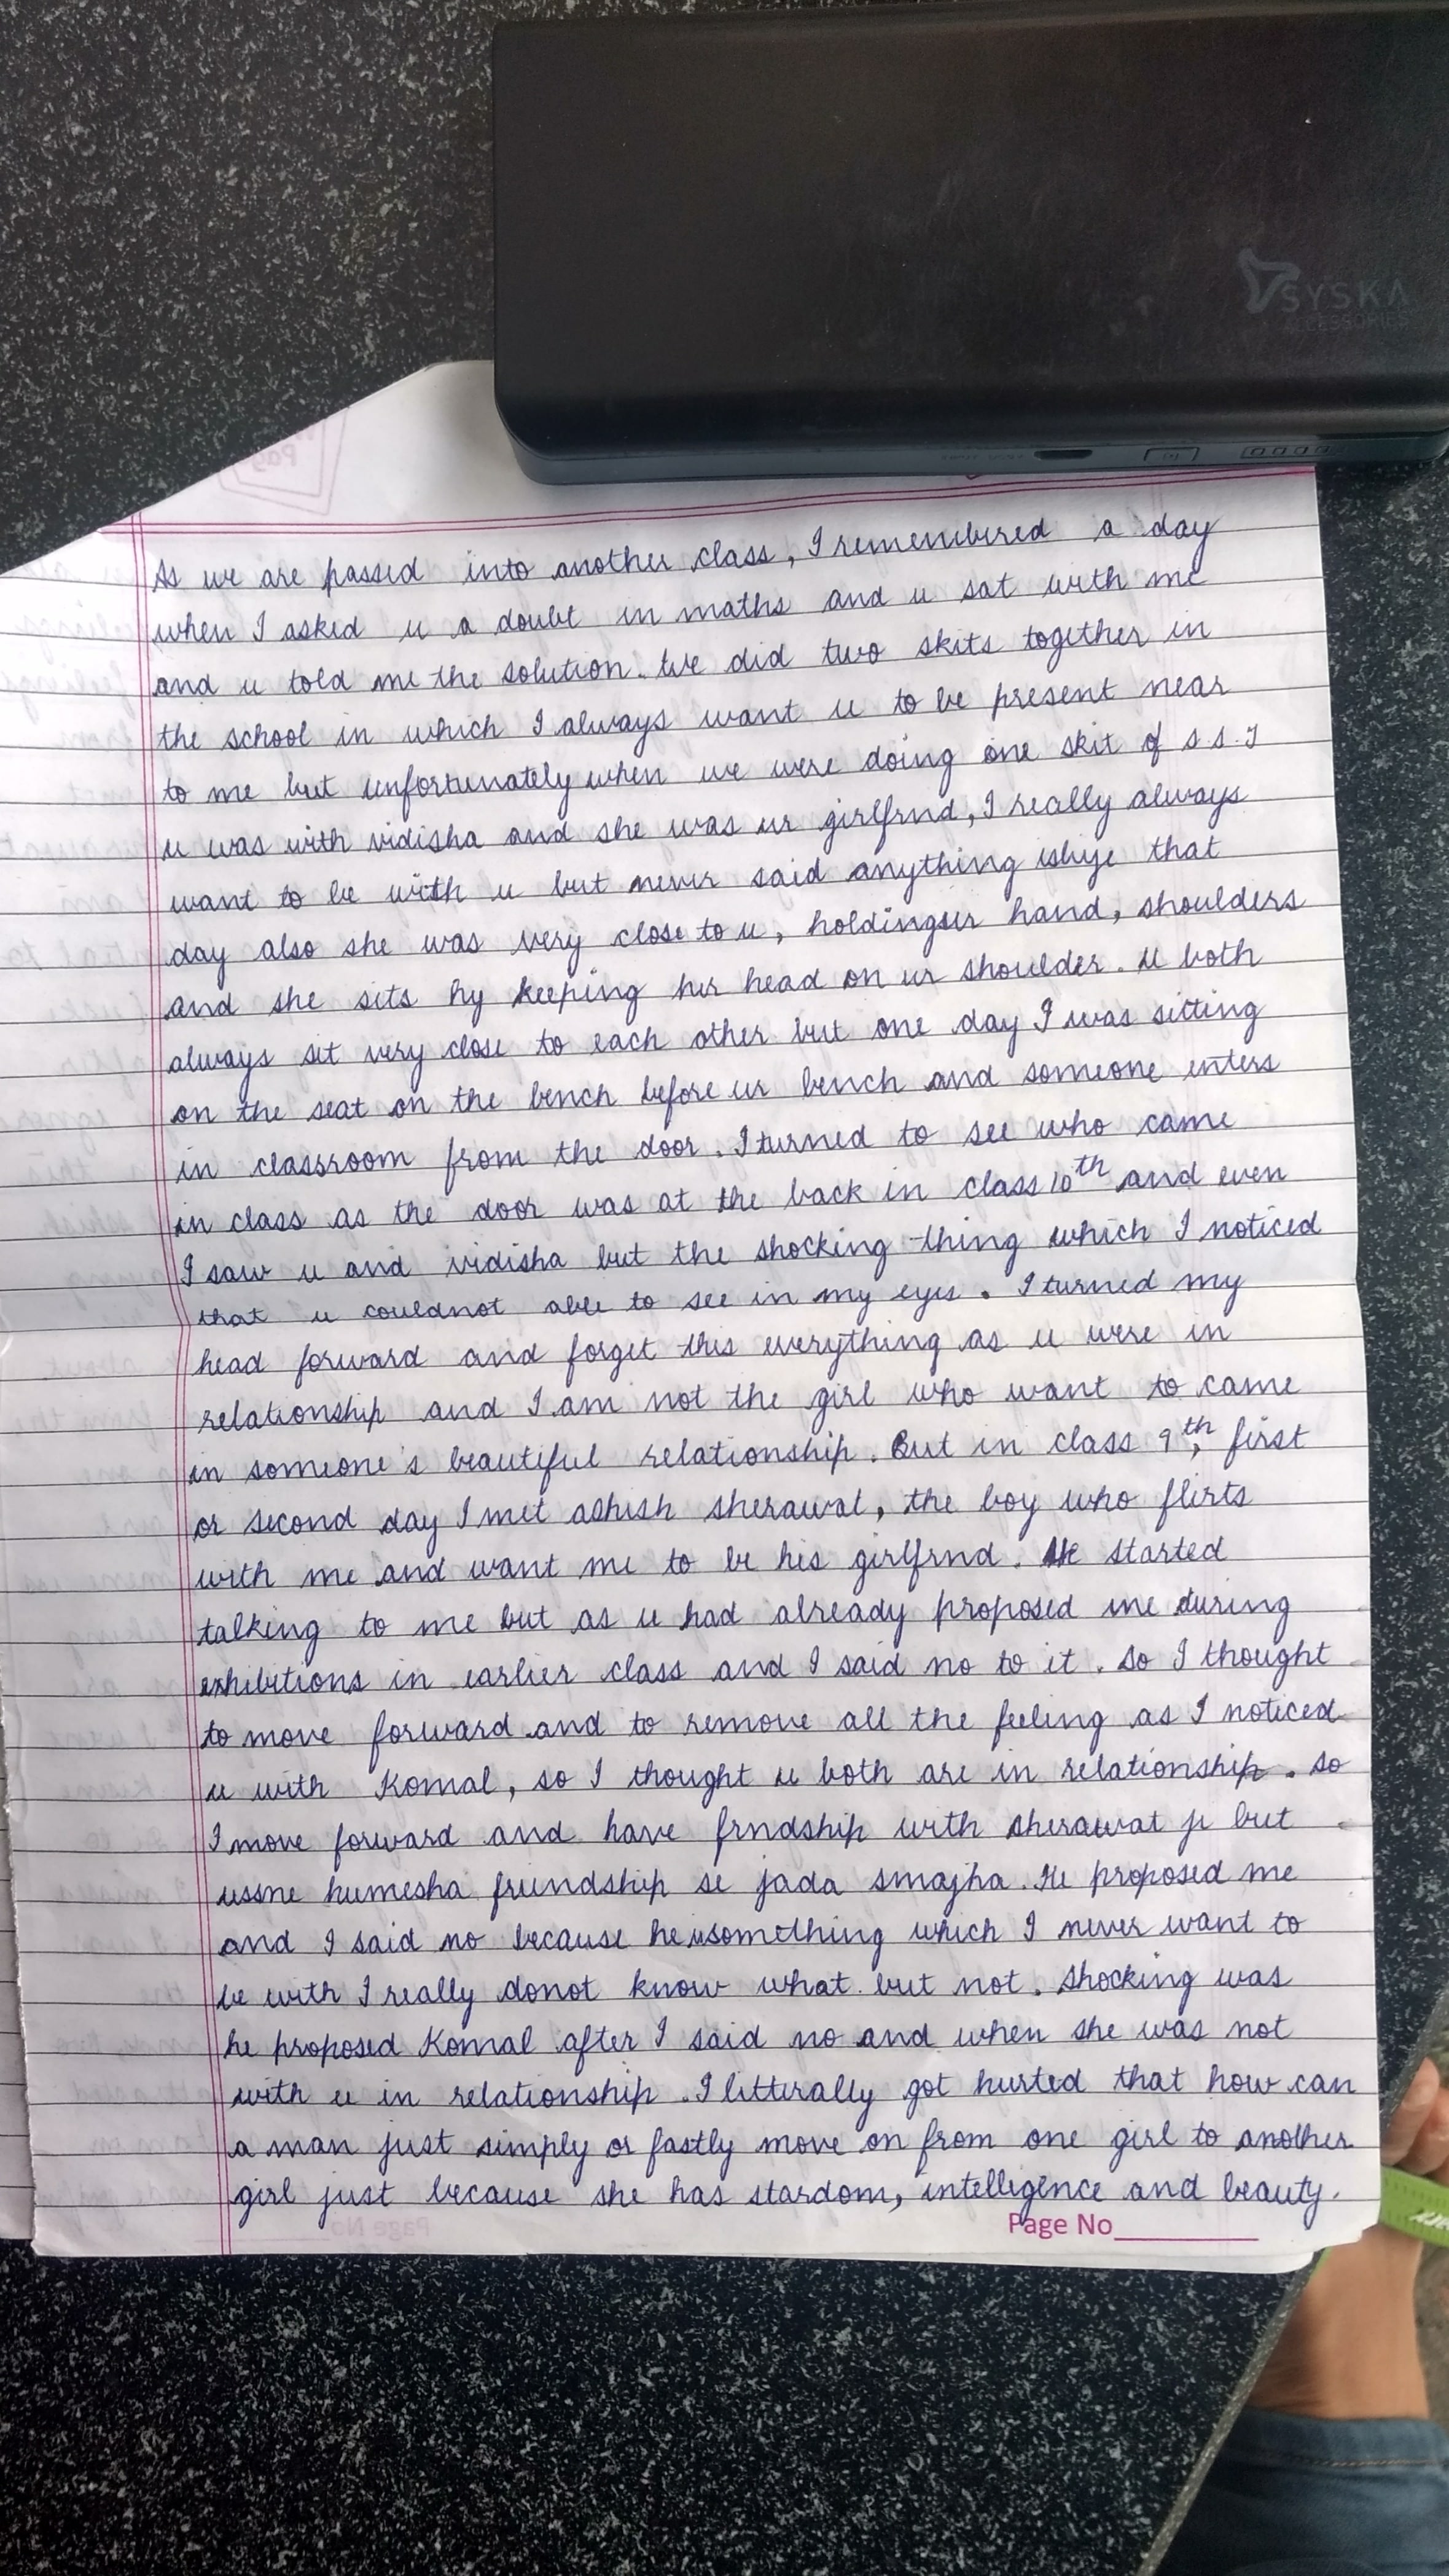 SYSKA
ACCESSORIES
As we are passed into another class, I remembered a day
when I asked u a doubt in maths and u sat with me
and u told me the solution. We did two skits together in
the school in which I always want u to be present near
to me but unfortunately when we were doing one skit of s.s.T
u was with vidisha and she was ur girlfrnd, I really always
want to be with u but never said anything that
day also she was very close to u, holdingur hand, shoulders
and she sits by keeping her head on ur shoulder. U both
always sit very close to each other but one day I was sitting
on the seat on the bench before ur bench and someone enters
in classroom from the door. I turned to see who came
in class as the door was at the back in class 10th and even
I saw u and vidisha but the shocking thing which I noticed
that u couldnot able to see in my eyes. I turned my
head forward and forget this everything as u were in
relationship and I am not the girl who want to came
in someone's beautiful relationship. But in class 9th, first
or second day I met ashish sherawat, the boy who flirts
with me and want me to be his girlfrnd. He started
talking to me but as u had already proposed me during
exhibitions in earlier class and I said no to it. So I thought
to move forward and to remove all the feeling as I noticed
u with Komal, so I thought u both are in relationship. So
I move forward and have frndship with sherawat ji but
ussne humesha friendship se jada smajha. He proposed me
and I said no because he something which I never want to
be with I really donot know what but not. Shocking was
he proposed Komal after I said no and when she was not
with u in relationship. I litterally got hurted that how can
a man just simply or fastly move on from one girl to another
girl just because she has stardom, intelligence and beauty.
Page No